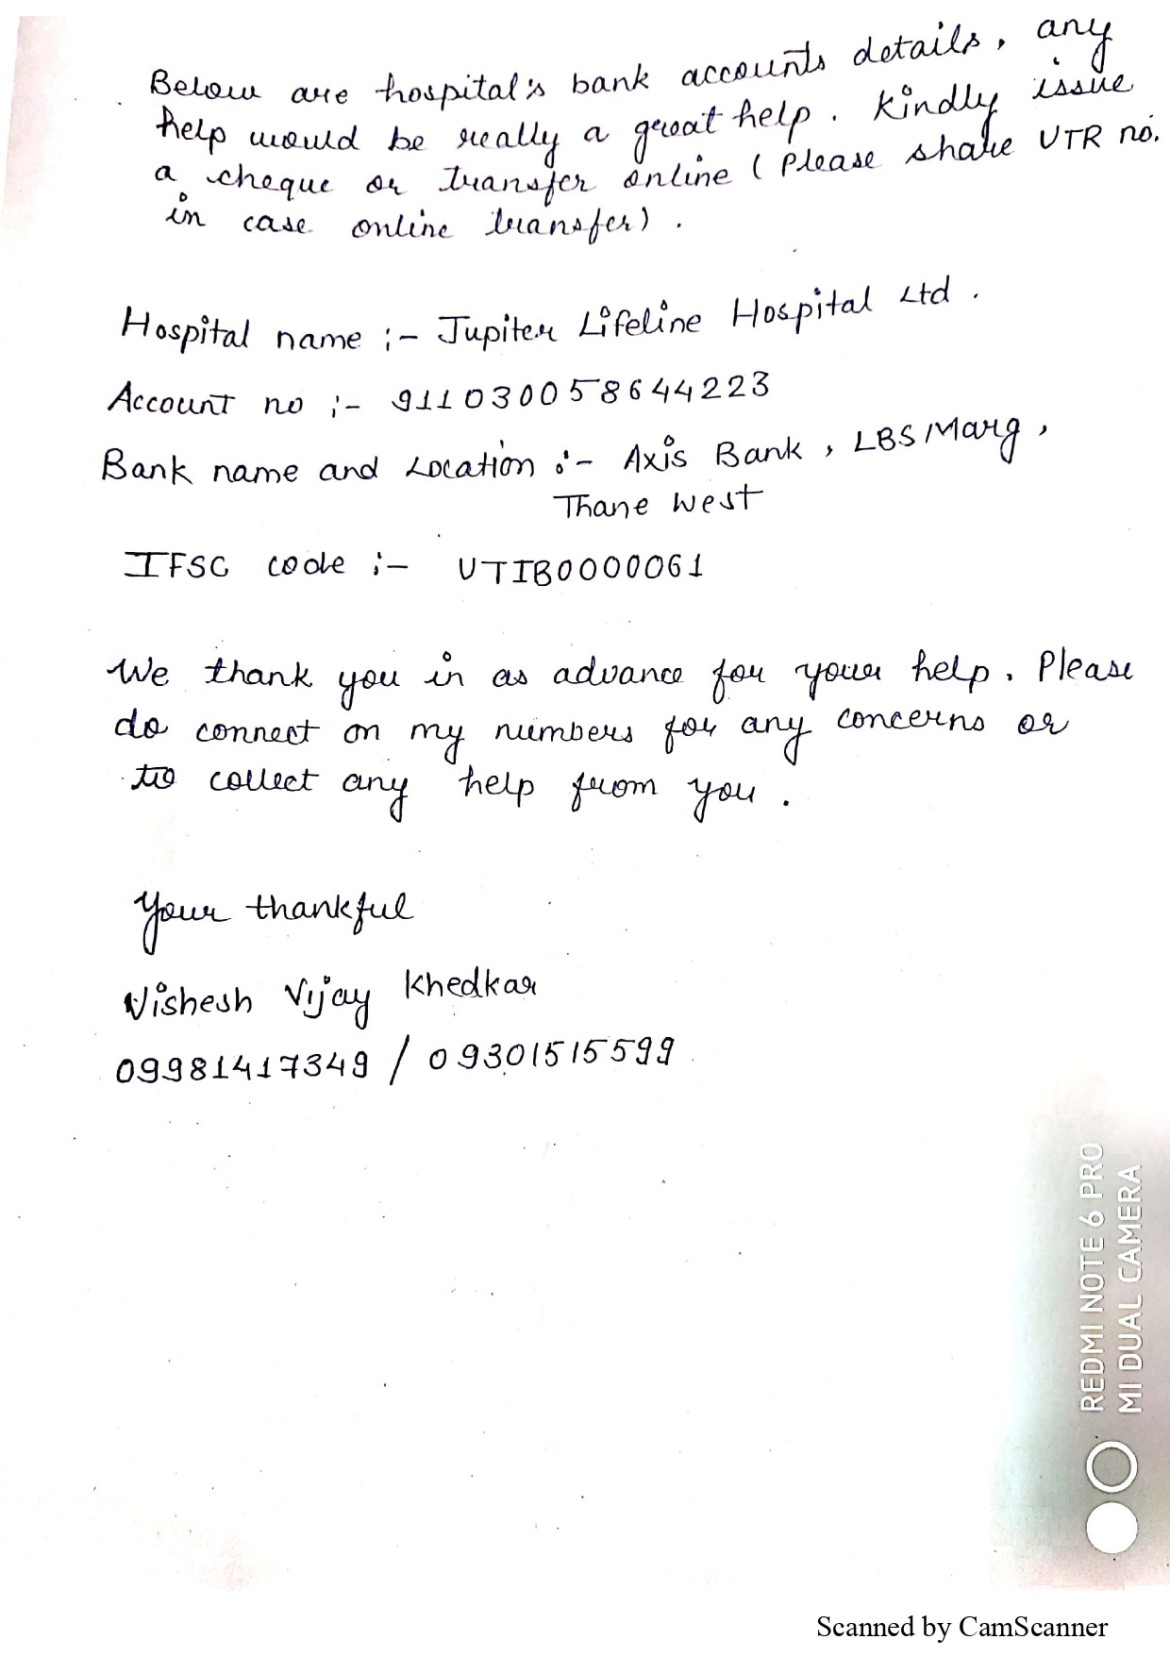 Below are hospital's bank accounts details, any
help would be really a great help. Kindly issue
a cheque or transfer online (Please share UTR no.
in case online transfer).
Hospital name :- Jupiter Lifeline Hospital Ltd.
Account no :- 911030058644223
Bank name and Location :- Axis Bank, LBS Marg,
Thane West
IFSC code :- UTIB0000061
We thank you in as advance for your help. Please
do connect on my numbers for any concerns or
to collect any help from you.
Your thankful
Vishesh Vijay Khedkar
09981417349 / 09301515599
REDMI NOTE 6 PRO
MI DUAL CAMERA
Scanned by CamScanner